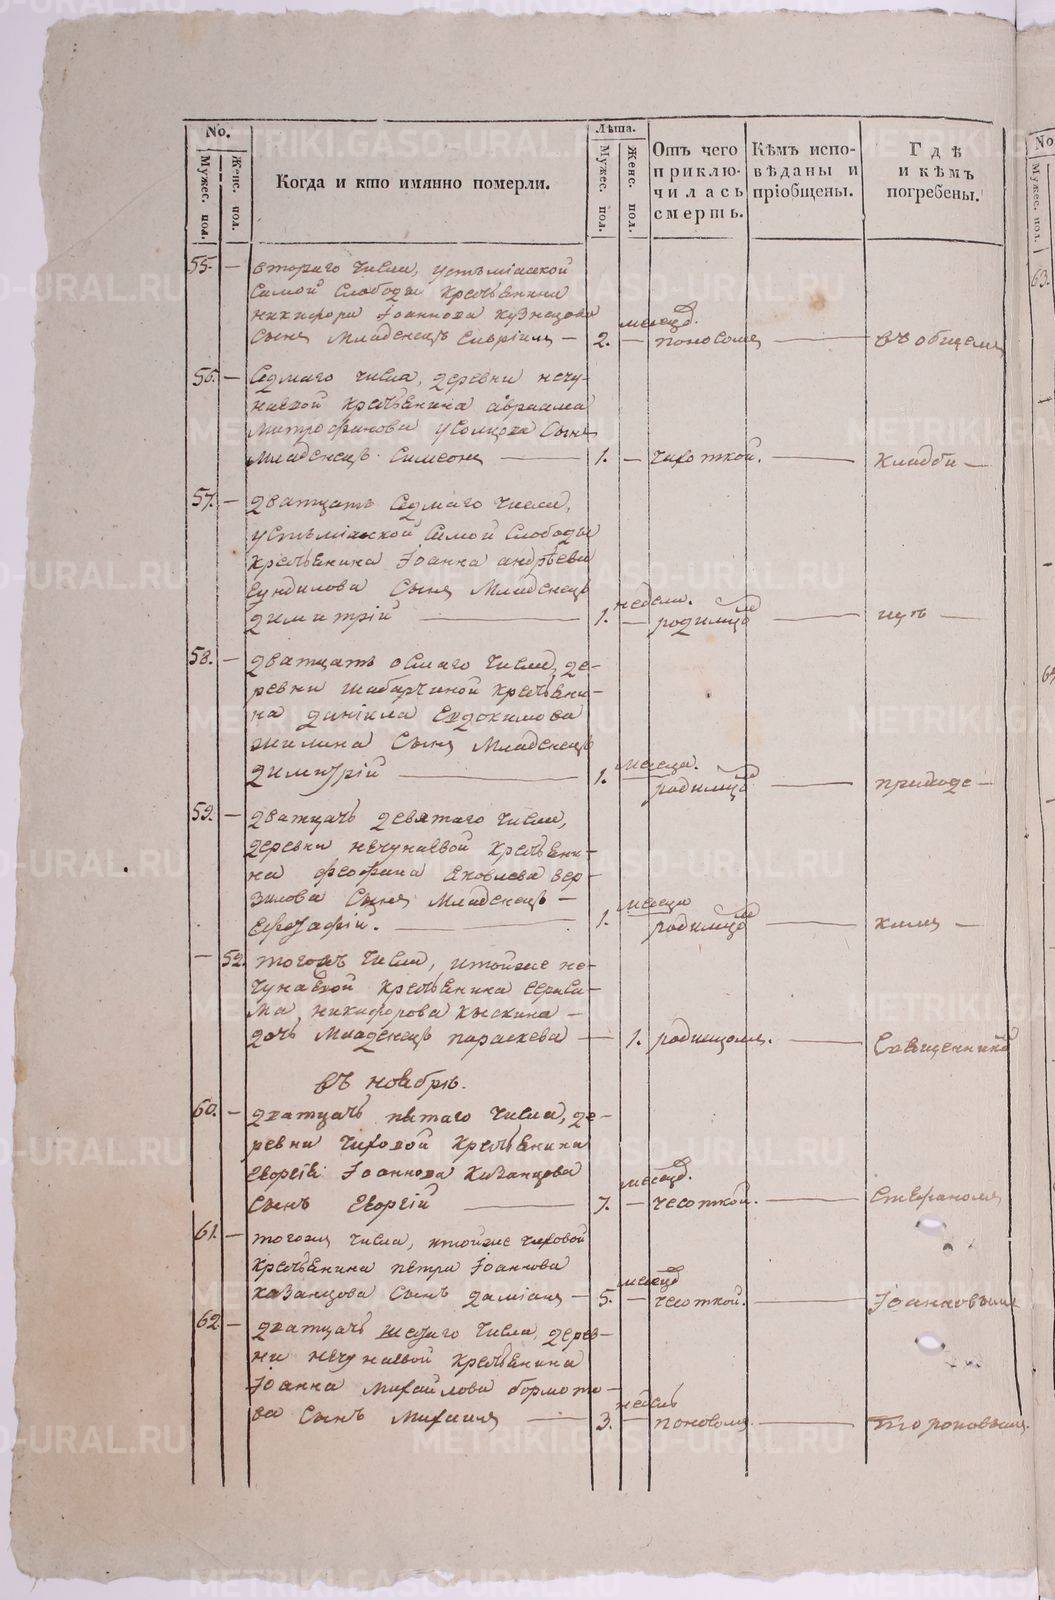 No.
Мужес. пол.
Женс. пол.
Когда и кто имянно померли.
Лѣта.
Мужес. пол.
Женс. пол.
Отъ чего приклю-
чилась смерть.
Кѣмъ испо-
вѣданы и
пріобщены.
Гдѣ
и кѣмъ
погребены.
55. — втораго числа, устьміасской
самой слободы крестьянина
никифора Іоаннова кузнецова
сынъ младенецъ Гаврііл — 2. месяцов. — поносомъ — въ общемъ
56. — седмаго числа, деревни нечу-
наевой крестьянина авраама
митрофанова усолцова сынъ
младенецъ симеонъ — 1. — чихоткой. — кладби —
57. — дватцать седмаго числа,
устьміаской самой слободы
крестьянина Іоанна андрѣева
сундилова сынъ младенецъ
димитрій — 1. недели. — родимцом — ще —
58. — дватцать осмаго числа, де-
ревни шабарчиной крестьяни-
на даніила Евдокимова
жилина сынъ младенецъ
димитрій — 1. месяца. — родимцом — приходе —
59. — дватцать девятаго числа,
деревни нечунаевой крестьяни-
на феофана яковлева вер-
зилова сынъ младенецъ —
Евстафій. — 1. месяца — родимцом — кимъ —
— 52. тогожъ числа, итойже не-
чунаевой крестьянина гераси-
ма никифорова кыскина —
дочь младенецъ параскева — 1. родимцомъ. — Священником
въ ноябрѣ.
60. — дватцать пятаго числа, де-
ревни чиховой крестьянина
Георгія Іоаннова Казанцова
сынъ Георгій — 7. месяцов. — чесоткой. — Стефаномъ
61. — тогожъ числа, итойже чиховой
крестьянина петра Іоаннова
казанцова сынъ даміанъ — 5. месяцов — чесоткой. — Іоанновымъ
62. — дватцать шестаго числа, дерев-
ни нечунаевой крестьянина
Іоанна михайлова бормото-
ва сынъ михаилъ — 3. недель — поносомъ. — Тороповымъ.
No
Мужес. пол.
63.